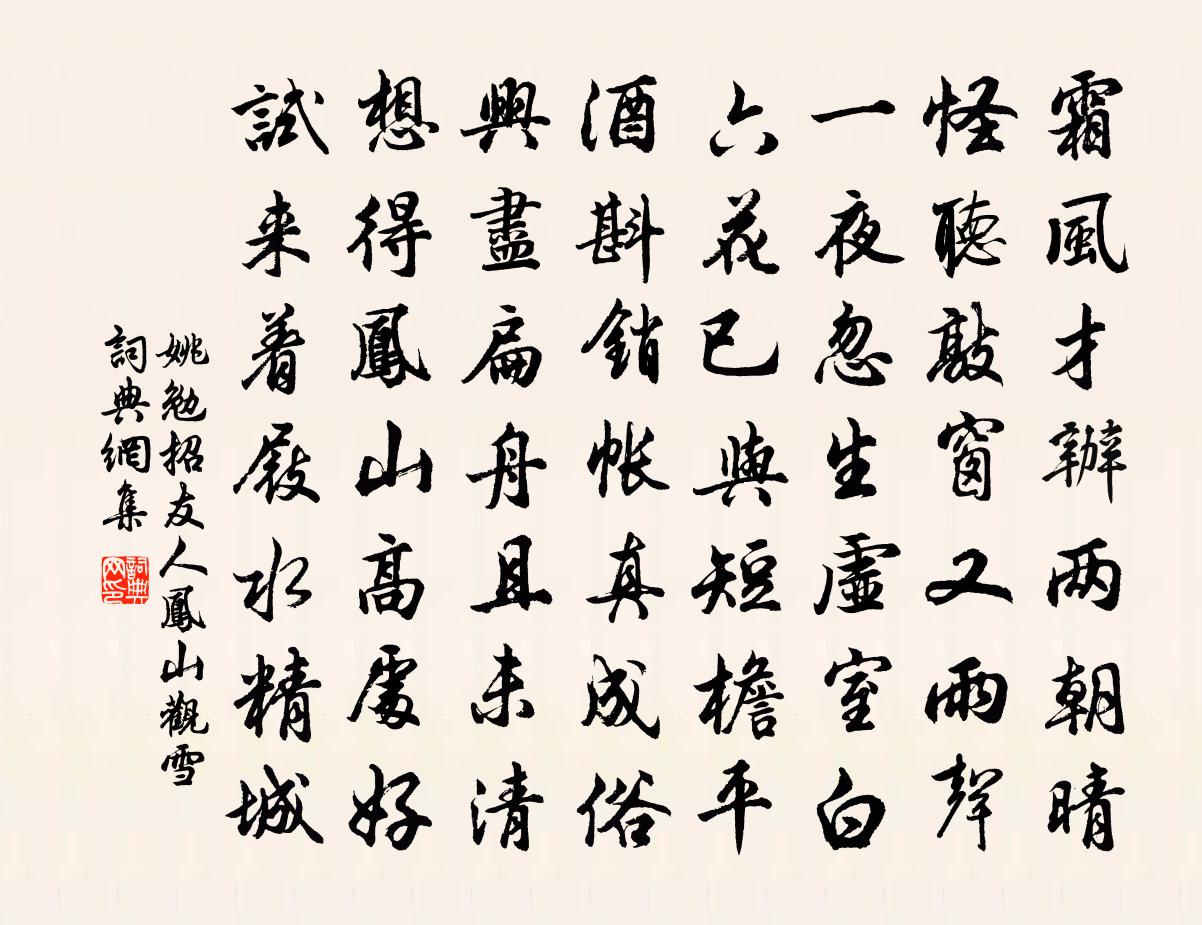 霜風才辦两朝晴
怪聽敲窗又雨聲
一夜忽生虛室白
六花已與短檐平
酒斟銷帳真成俗
興盡扁舟且未清
想得鳳山高處好
試来着屐水精城
姚勉招友人鳳山觀雪
詞典網集
詞典网印